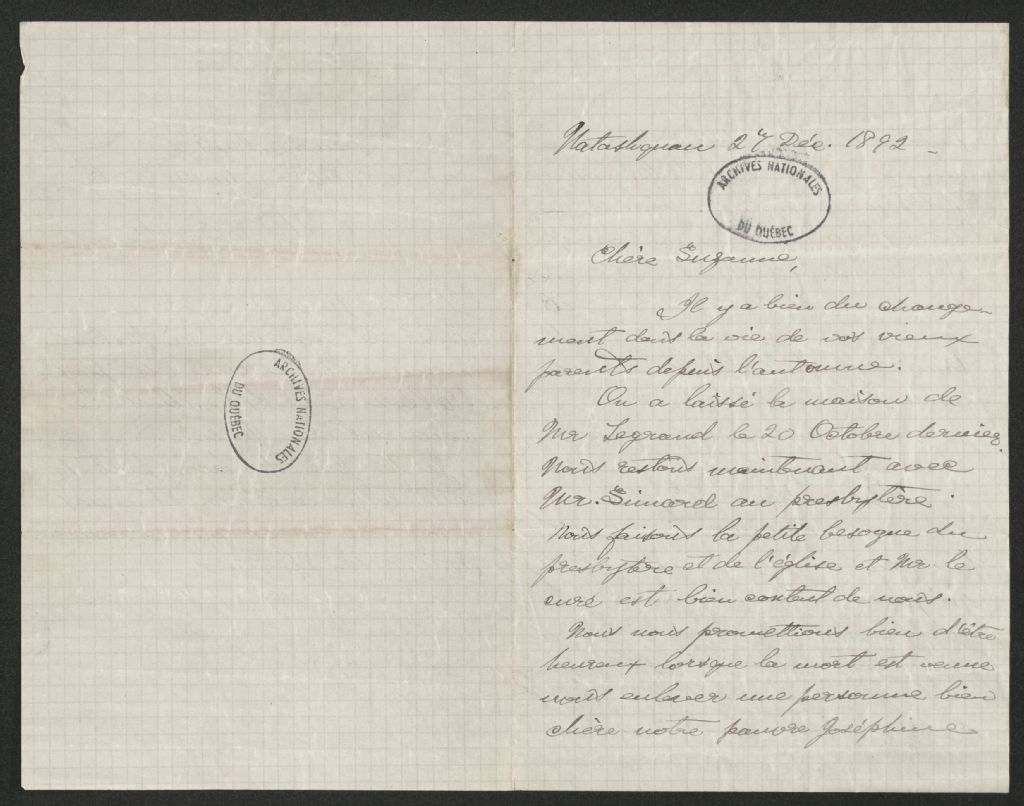 ARCHIVES NATIONALES
DU QUÉBEC
Natashquan 27 Déc. 1892
ARCHIVES NATIONALES
DU QUÉBEC
Chère Suzanne,
Il y a bien du change-
ment dans la vie de vos vieux
parents depuis l'automne.
On a laissé la maison de
Mr Legrand le 20 Octobre dernier.
Nous restons maintenant avec
Mr. Simard au presbytère.
Nous faisons la petite besogne du
presbytère et de l'église et Mr. le
curé est bien content de nous.
Nous nous promettions bien d'être
heureux lorsque la mort est venue
nous enlever une personne bien
chère notre pauvre Joséphine